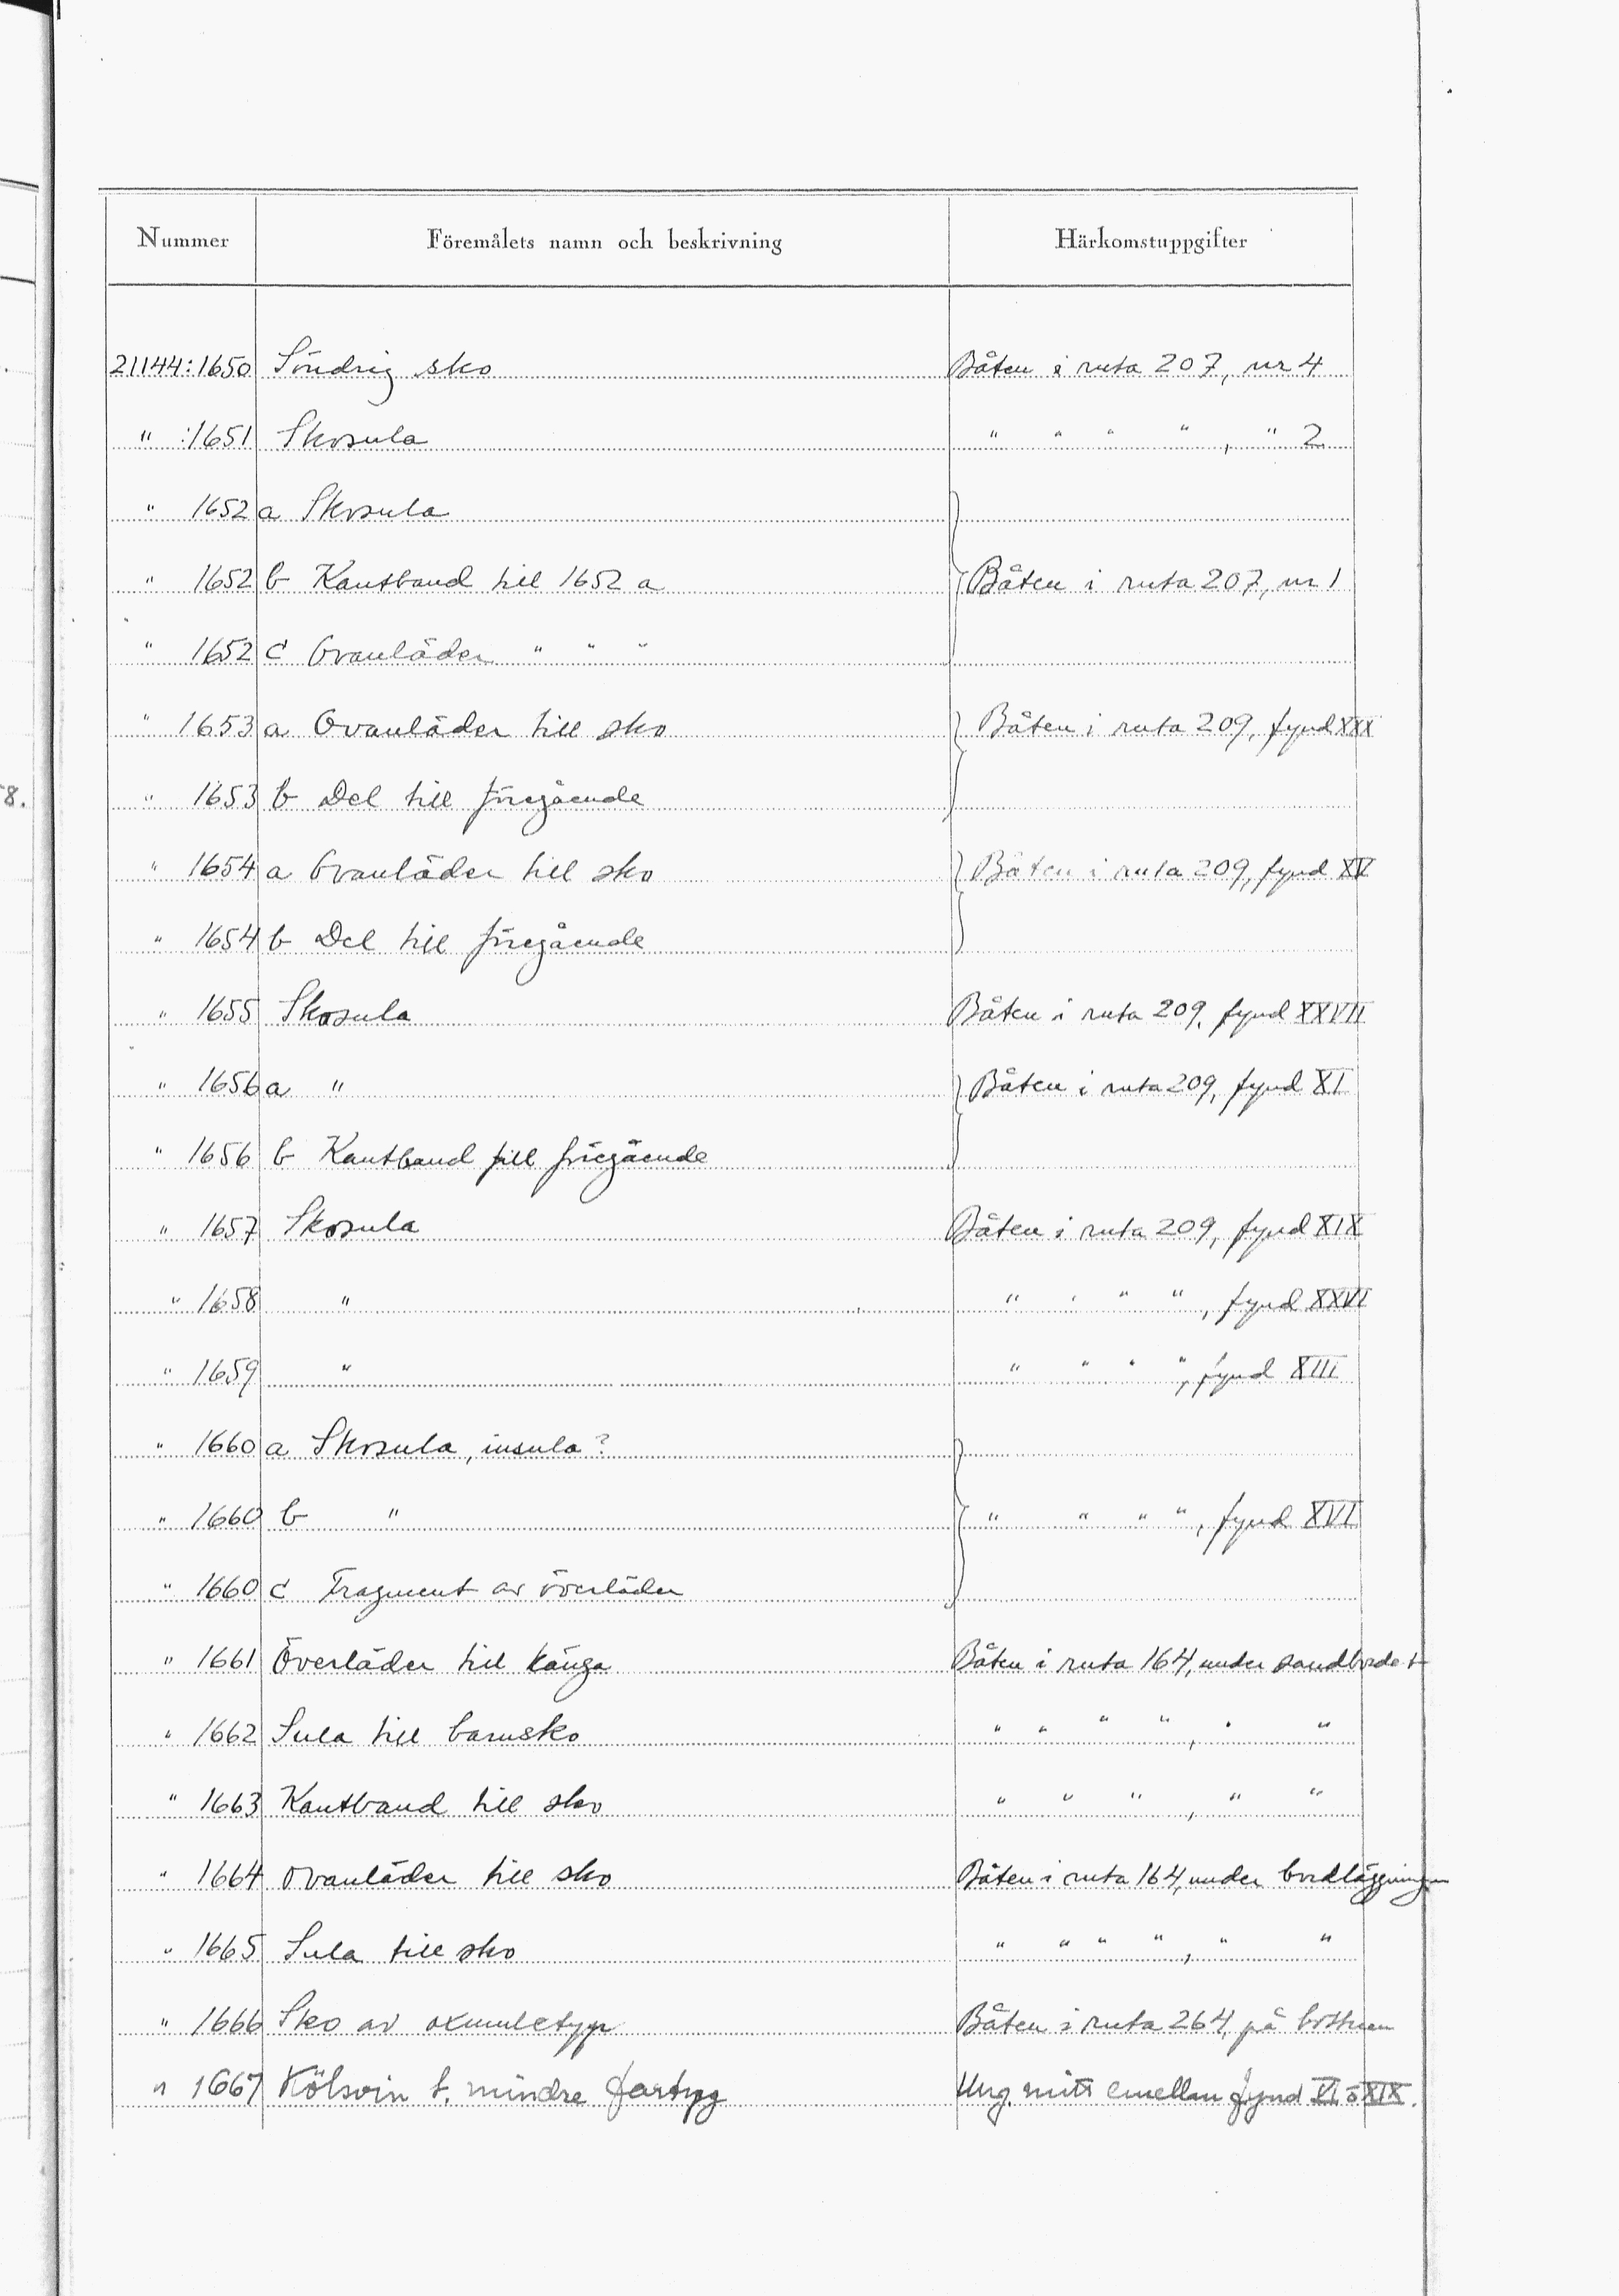 Nummer Föremålets namn och beskrivning Härkomstuppgifter
21144:1650 Söndrig sko Båten i ruta 207, nr 4
" :1651 Skosula " " " " , " 2
" 1652 a Skosula
" 1652 b Kantband till 1652 a Båten i ruta 207, nr 1
" 1652 c Ovanläder " " "
" 1653 a Ovanläder till sko Båten i ruta 209, fynd XXX
8. " 1653 b Del till föregående
" 1654 a Ovanläder till sko Båten i ruta 209, fynd XV
" 1654 b Del till föregående
" 1655 Skosula Båten i ruta 209, fynd XXVII
" 1656 a " Båten i ruta 209, fynd XI
" 1656 b Kantband till föregående
" 1657 Skosula Båten i ruta 209, fynd XIX
" 1658 " " " " " , fynd XXVI
" 1659 " " " " " , fynd XIII
" 1660 a Skosula, insula?
" 1660 b " " " " " , fynd XVI
" 1660 c Fragment av överläder
" 1661 Överläder till känga Båten i ruta 164, under sandbordet
" 1662 Sula till barnsko " " " " , " "
" 1663 Kantband till sko " " " , " "
" 1664 Ovanläder till sko Båten i ruta 164, under bordläggningen
" 1665 Sula till sko " " " " , " "
" 1666 Sko av oxmuletyp Båten i ruta 264, på bottnen
" 1667 Kölsvin t. mindre fartyg Ung. mitt emellan fynd VI o XIX.